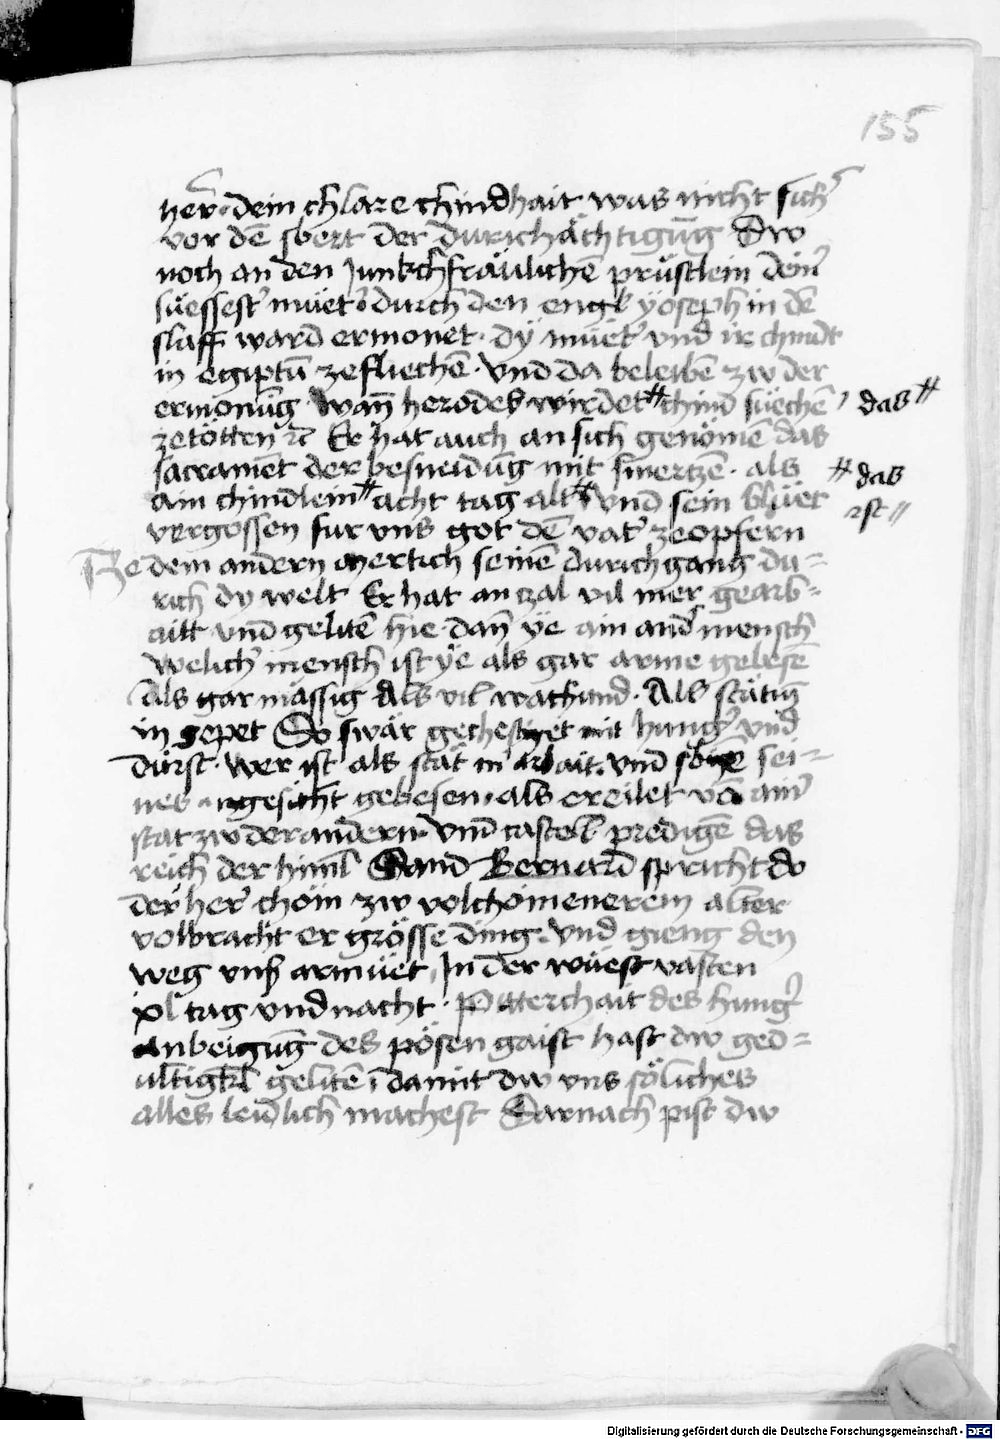 155
her̄ · dein chlare chindhait was nicht sich͛
vor dē sbert der durichächtigūg Dw
noch an den Junkchfräwlichē prüstlein dein͛
süessest͛ müet͛ · durch den engl yöseph in dē
slaff ward ermonet · dÿ müet͛ vnd ir chindt
in egiptū zefliechē · vnd da beleibē zw der
ermonūg · wan̄ herodes wirdet # chind süechē / das #
zetötten rc̄ Er hat auch an sich genömē das
sacramēt der besneidūg mit smertzē · als # das
ain chindlein # acht tag alt # vnd sein blüet ist //
vergossen fur vns got dē vat͛ zeopfern
Ze dem andern merkch seinē durichgang du=
rich dy welt Er hat an zal vil mer gearb=
aitt vnd gelitē hie · dan̄ ye ain and͛ mensch
welich͛ mensch ist ye als gar arme gebesē
Als gar mässig Als vil wachund · Als stätig
in gepet So swär gechestiget mit hung͛ vnd
dürst · wer ist als stät in arbait · vnd sei=
nes angesicht gebesen · als ereilet vō ain͛
stat zw der andern · vnd castell · predigē das
reich der himl Sand Bernard spricht do
der her͛ chöm zw volchömenerem alter
volbracht er grösse ding · vnd gieng den
weg vns͛ armüet · In der wüest vasten
xl tag vnd nacht · Pitterchait des hung͛
anbeigūg des pösen gaist hast dw ged=
ultigkl gelitē damit dw vns söliches
alles leidlich machest Darnach pist dw
Digitalisierung gefördert durch die Deutsche Forschungsgemeinschaft - DFG